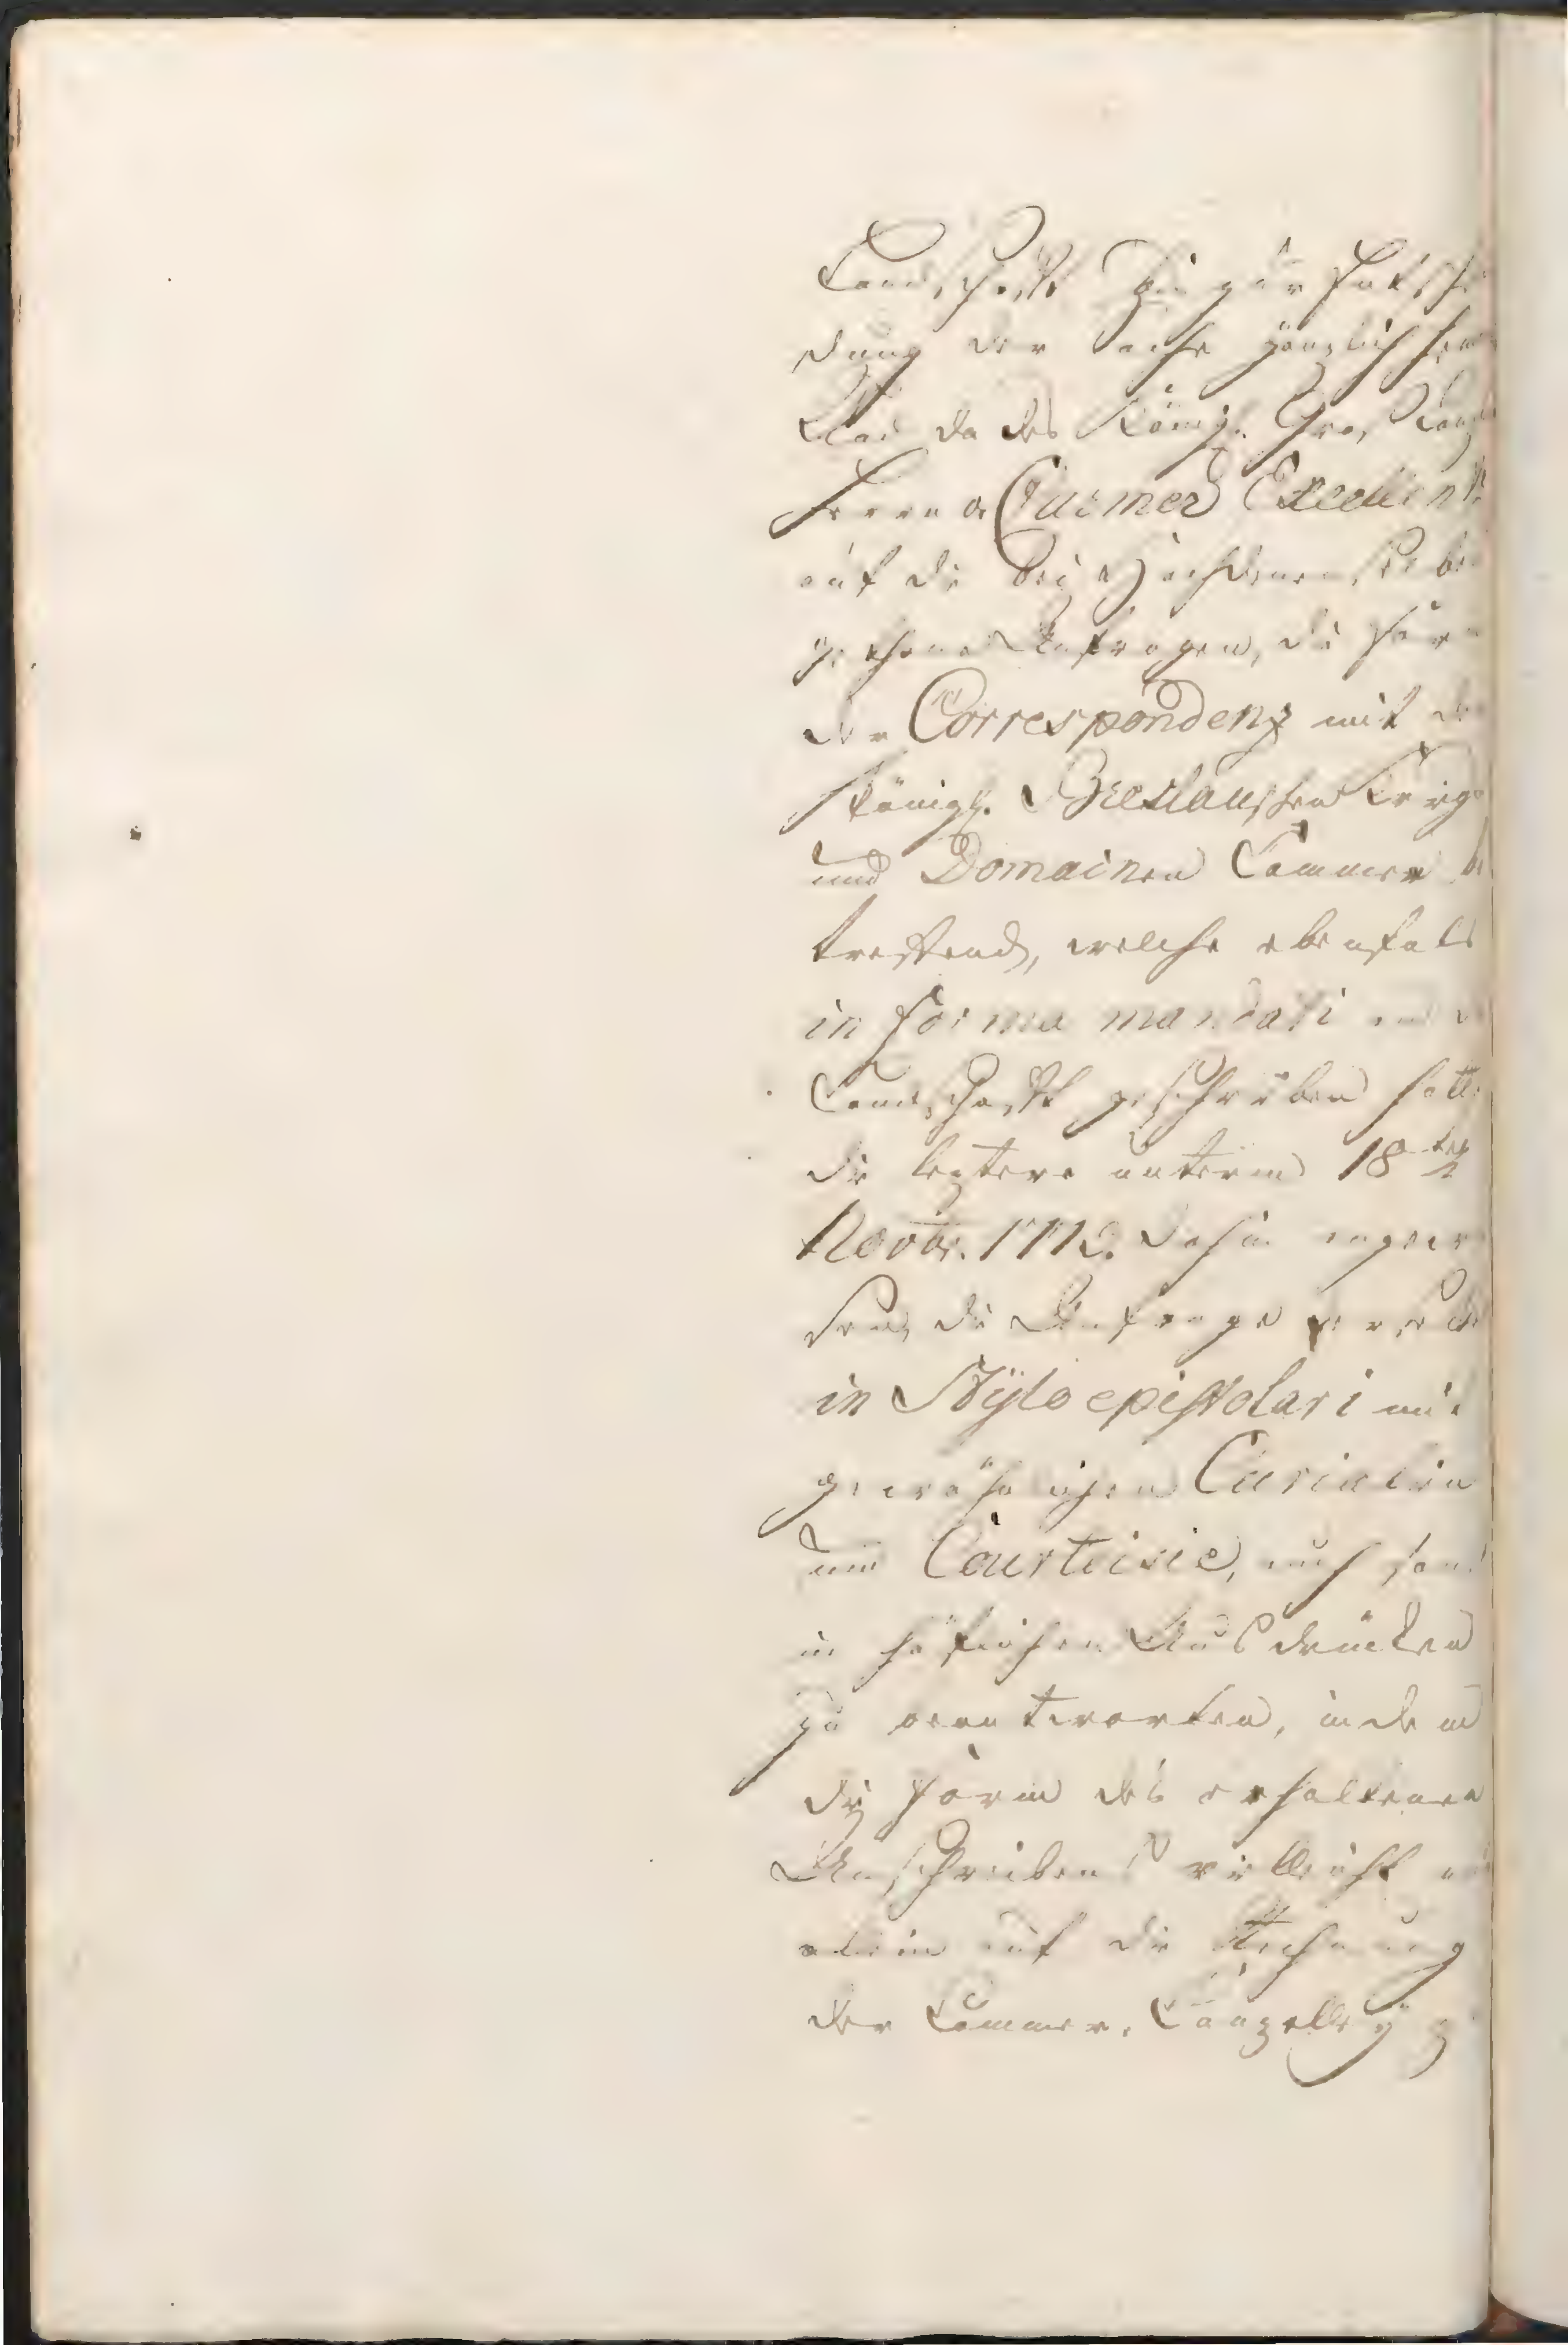 Landschafft hin zur Entschei
dung der Sache gänzlich
Und da des Königl. Gros Canz
Herrn v Carmer Excellentz
auf die bey Hochdenenselben
gethane Anfragen, die Form
der Correspondenz mit der
Königl. Breslauschen Krieges
und Domainen Cammer be
treffend, welche ebenfals
in forma mandati an die
Landschafft geschrieben hatte
die leztere unterm 18ten
Novbr. 1772. dahin angewie
sen, die Anfrage
in Stylo epistolari mit
gewöhnlichen Curialien
und Courtoisie, auch sonst
in höflichen Ausdrücken
zu beantworten, indem
die Form des erhaltenen
Anschreibens vielleicht
allein auf die Rechnung
der Cammer-Canzelley